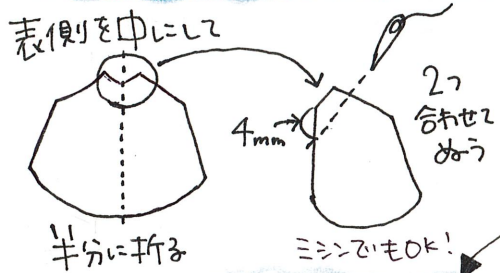 表側を中にして
半分に折る
4mm
2つ
合わせて
ぬう
ミシンでもOK!